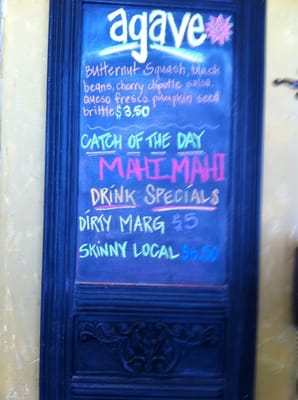 agave
Butternut Squash, black
beans, cherry chipotle salsa,
queso fresco, pumpkin seed
brittle $3.50
CATCH OF THE DAY
MAHI MAHI
DRINK SPECIALS
DIRTY MARG $5
SKINNY LOCAL $5.50